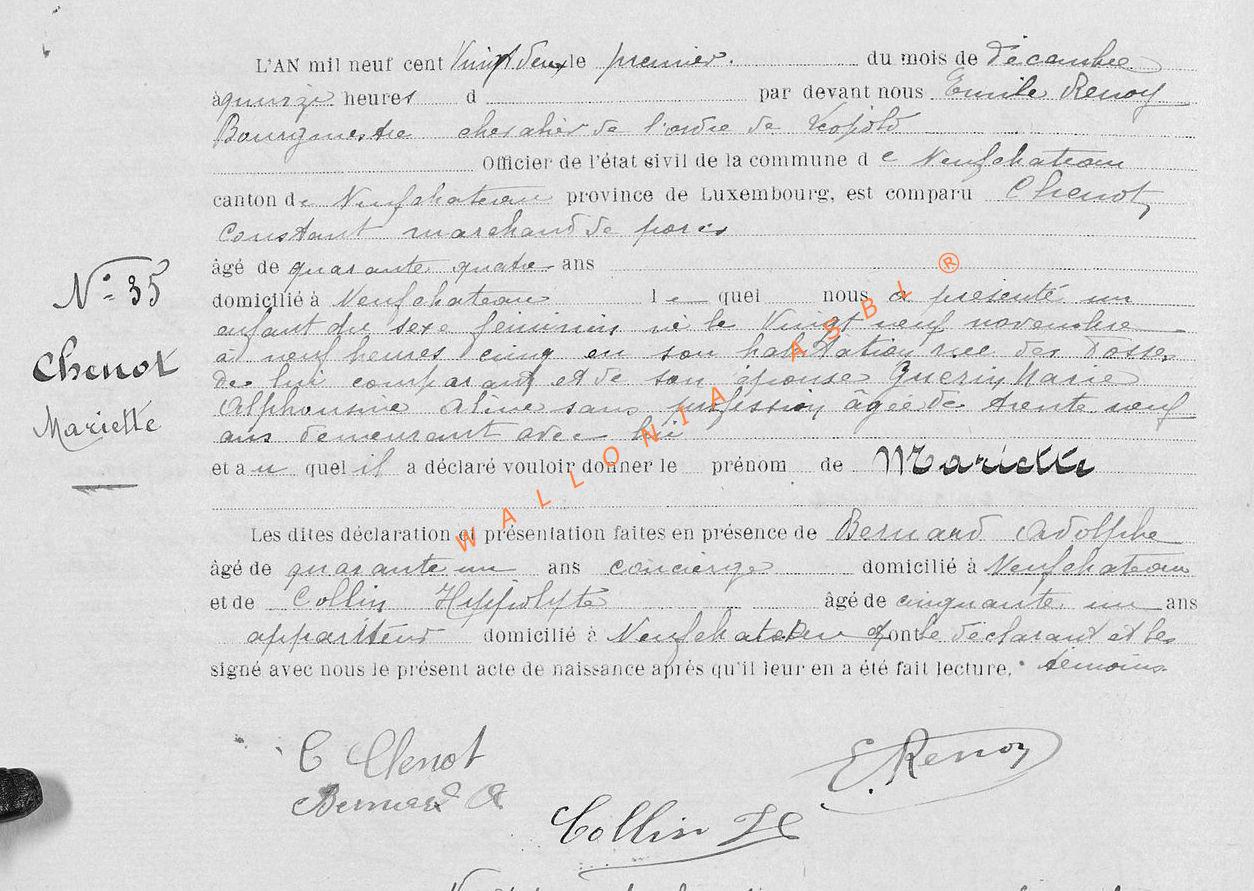 L'AN mil neuf cent Vingt deux le premier. du mois de Décembre
à quinze heures d par devant nous Emile Renoy
Bourgmestre chevalier de l'ordre de Léopold
Officier de l'état sivil de la commune d e Neufchateau
canton de Neufchateau province de Luxembourg, est comparu Chenot,
Constant marchand de porcs
âgé de quarante quatre ans
domicilié à Neufchateau le quel nous a présenté un
enfant du sexe féminin né le Vingt neuf novembre
à neuf heures cinq en son habitation rue des Fosses
de lui comparant et de son épouse Guerin Marie
Alphonsine Aline sans profession âgée de trente neuf
ans demeurant avec lui
et au quel il a déclaré vouloir donner le prénom de Mariette
N° 35
Chenot
Mariette
Les dites déclaration et présentation faites en présence de Bernard Adolphe
âgé de quarante un ans concierge domicilié à Neufchateau
et de Collin Hippolyte âgé de cinquante un ans
appariteur domicilié à Neufchateau ont le déclarant et les
signé avec nous le présent acte de naissance après qu'il leur en a été fait lecture. témoins
C Chenot
E. Renoy
Bernard A
Collin H
WALLONIA ASBL ®